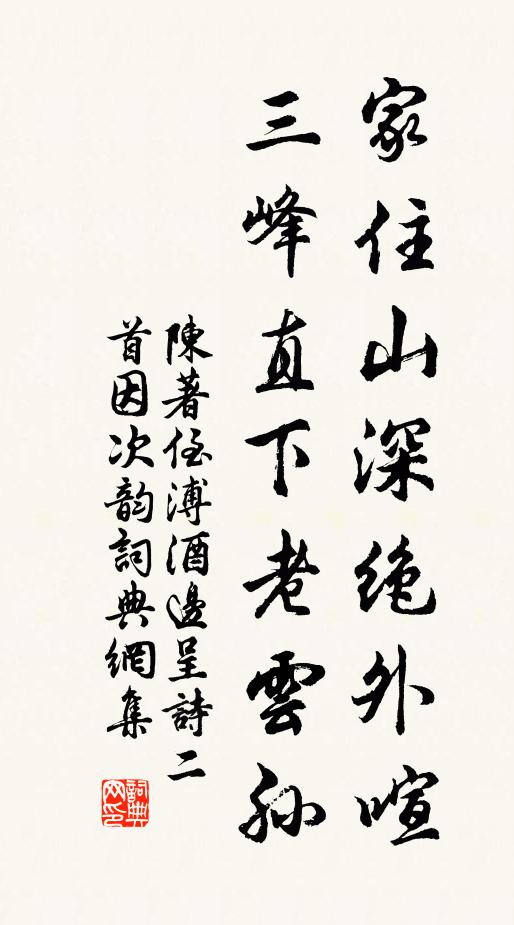 家住山深絶外喧
三峰直下老雲孫
陳著侄溥酒邊呈詩二
首因次韵詞典網集
詞典
网印